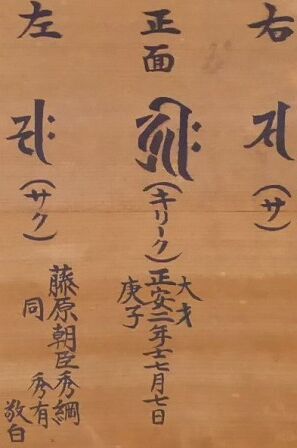 右
𑖭
（サ）
正面
𑖮𑖿𑖨𑖱𑖾
（キリーク）
大才
正安二年士七月七日
庚子
左
𑖭𑖾
（サク）
藤原朝臣秀綱
同 秀有
敬白